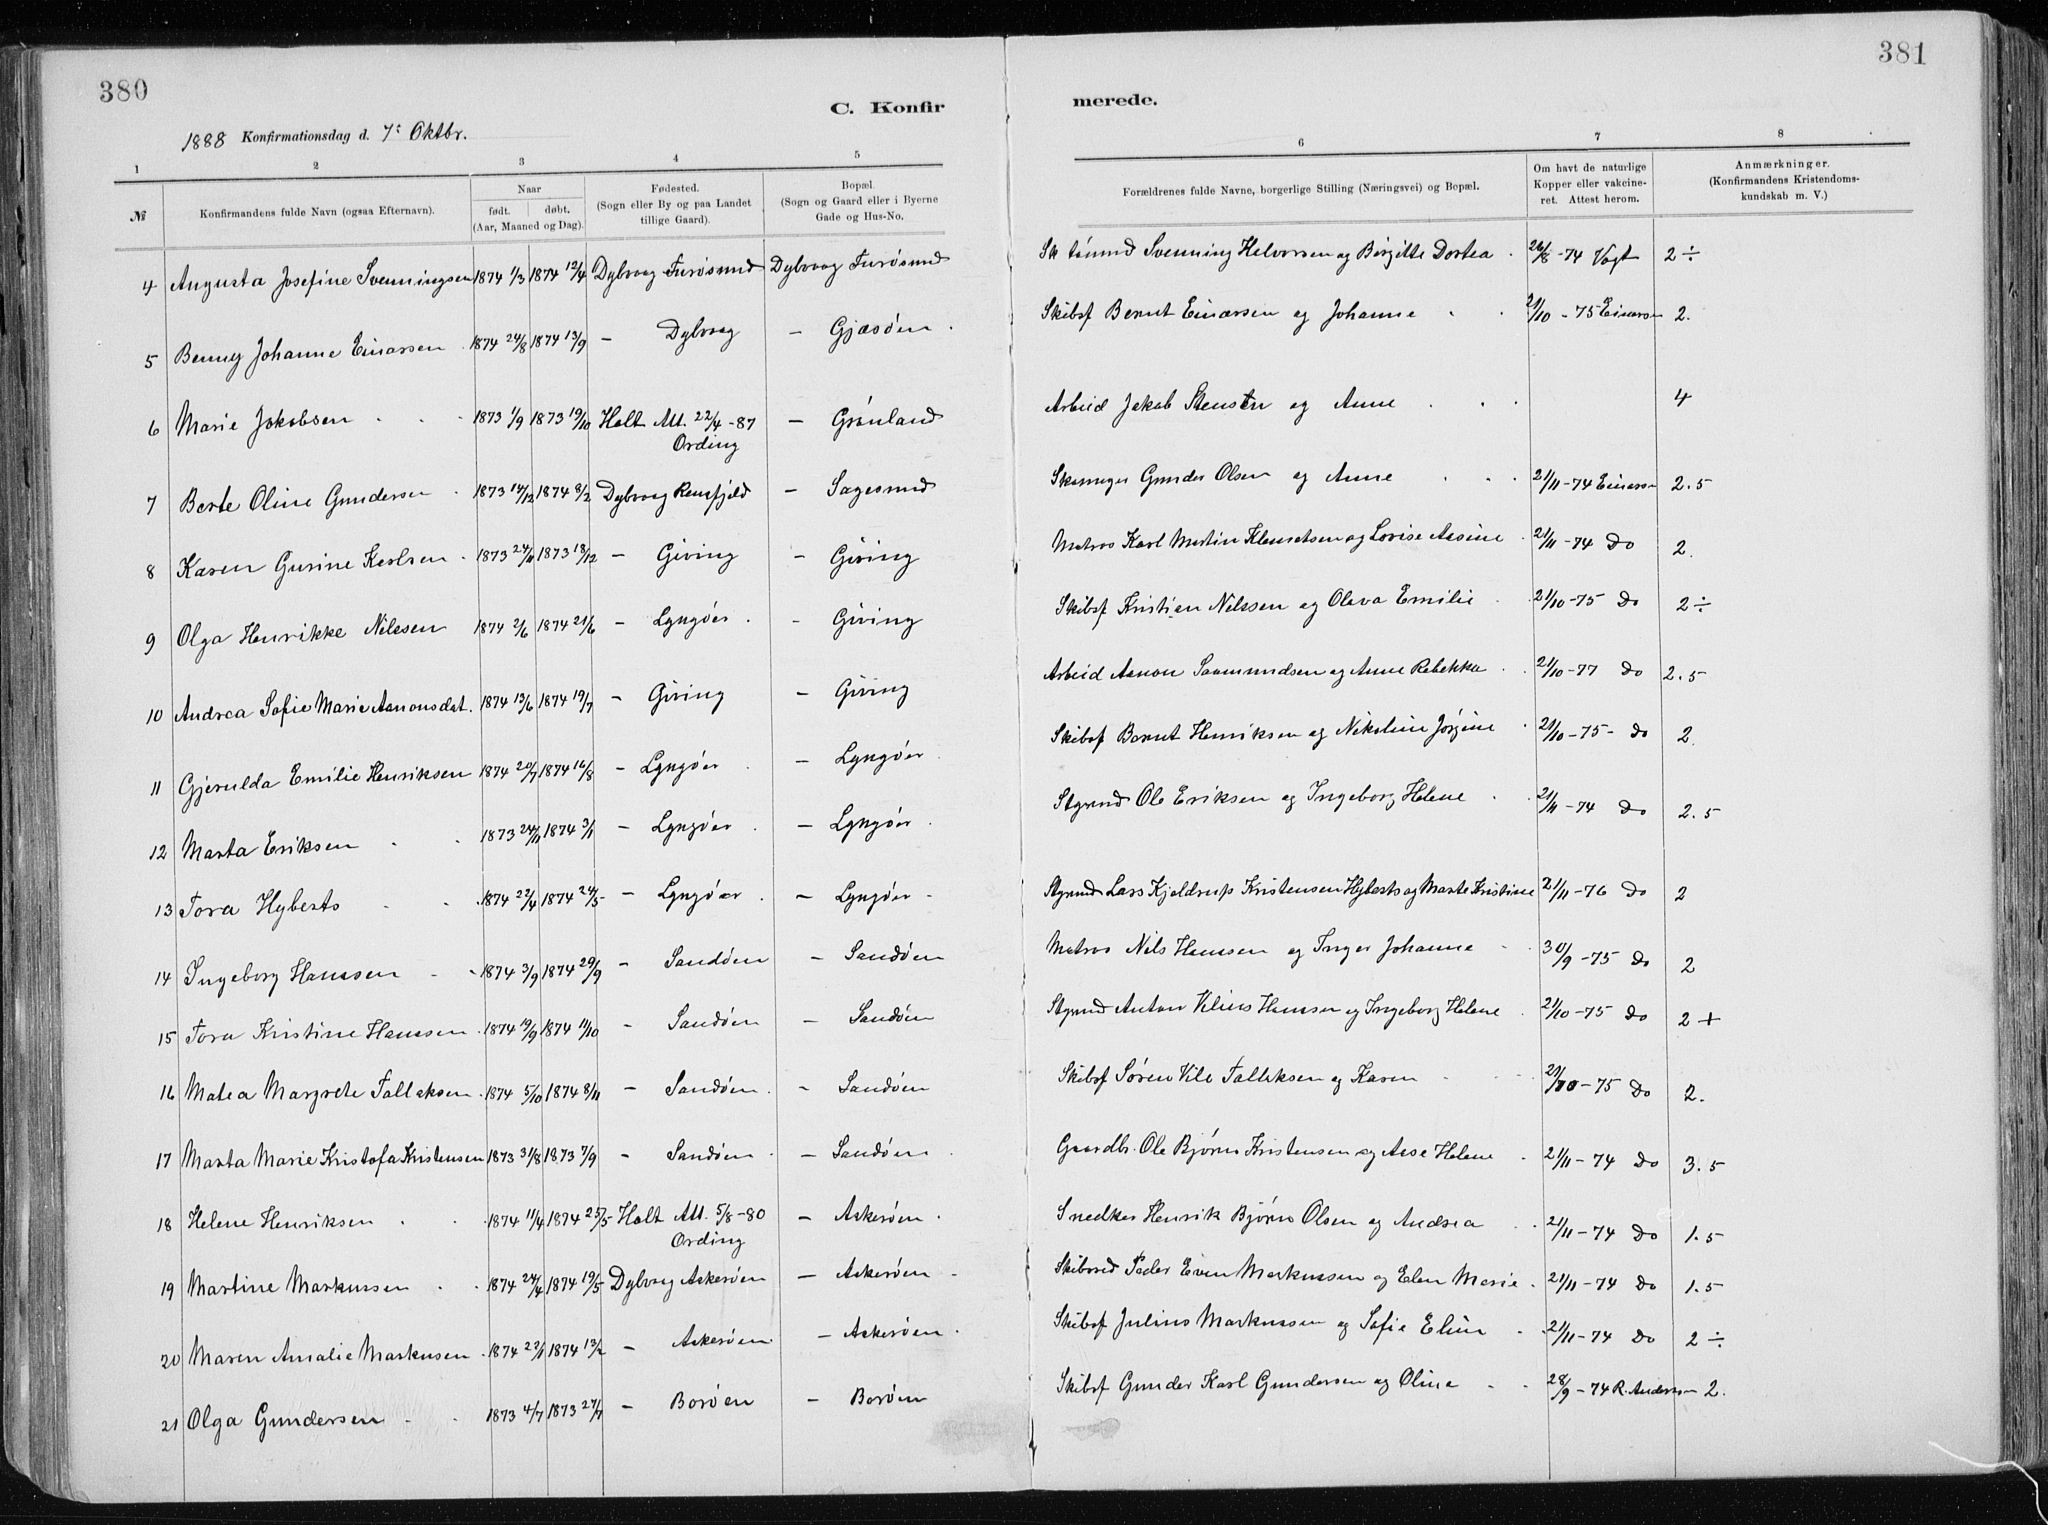 380
381
C. Konfirmerede.
1888 Konfirmationsdag d. 7de Oktbr.
1 2 3 4 5 6 7 8
№ Konfirmandens fulde Navn (ogsaa Efternavn). Naar født. døbt. (Aar, Maaned og Dag). Fødested. (Sogn eller By og paa Landet tillige Gaard). Bopæl. (Sogn og Gaard eller i Byerne Gade og Hus-No. Forældrenes fulde Navne, borgerlige Stilling (Næringsvei) og Bopæl. Om havt de naturlige Kopper eller vakcineret. Attest herom. Anmærkninger. (Konfirmandens Kristendomskundskab m. V.)
4 Augusta Josefine Svenningsen 1874 1/3 1874 12/4 Dybvaag Furøsund Dybvaag Furøsund Svenning Halvorsen og Birgitte Dortea 26/8 -74 Vogt 2 ÷
5 Benny Johanne Einarsen 1874 24/8 1874 13/9 - Dybvaag - Gjæsøen Skibsf Bernt Einarsen og Johanne 21/10 - 75 Einarsen 2.
6 Marie Jakobsen 1873 1/9 1873 19/10 Holt Att. 22/4 -87 Ording - Grønland Arbeid Jakob Stensen og Anne 4
7 Berte Oline Gundersen 1873 14/12 1874 8/2 Dybvaag Rensfjeld - Sagesund Skomager Gunder Olsen og Anne 21/11 -74 Einarsen 2.5
8 Karen Gurine Karlsen 1873 24/11 1873 18/12 - Giving - Giving Matros Karl Martin Klemetsen og Lovise Aasine 21/11 -74 Do 2.
9 Olga Henrikke Nilssen 1874 2/6 1874 21/6 - Lyngøer - Giving Skibsf Kristian Nilssen og Olava Emilie 21/10 -75 Do 2 ÷
10 Andrea Sofie Marie Aanonsdat. 1874 13/6 1874 19/7 - Giving - Giving Arbeid Aanon Saamundsen og Anne Rebekka 21/10 -77 Do 2.5
11 Gjerulda Emilie Henriksen 1874 20/7 1874 16/8 - Lyngøer - Lyngøer Skibsf Bernt Henriksen og Nikoline Jørgine 21/10 -75- Do 2.
12 Marta Eriksen 1873 24/11 1874 3/1 - Lyngøer - Lyngøer Styrmd Ole Eriksen og Ingeborg Helene 21/11 -74 Do 2.5
13 Tora Hyberts 1874 22/4 1874 24/5 - Lyngøer - Lyngøer Styrmd Lars Kjeldrup Kristensen Hyberts og Marte Kristine 21/11 -76 Do 2
14 Ingeborg Hanssen 1874 3/9 1874 29/9 - Sandøen - Sandøen Matros Nils Hanssen og Inger Johanne 30/9 -75 Do 2
15 Tora Kristine Hanssen 1874 19/9 1874 11/10 - Sandøen - Sandøen Styrmd Anton Vilius Hanssen og Ingeborg Helene 21/10 -75 Do 2 +
16 Matea Margrete Tallaksen 1874 5/10 1874 8/11 - Sandøen - Sandøen Skibsf Søren Vile Tallaksen og Karen 21/10 -75 Do 2.
17 Marta Marie Kristofa Kristensen 1873 31/8 1873 7/9 - Sandøen - Sandøen Gaardbr. Ole Bjørn Kristensen og Aase Helene 21/11 -74 Do 3.5
18 Helene Henriksen 1874 11/4 1874 25/5 Holt Att. 5/8 -80 Ording - Askerøen Snedker Henrik Bjørn Olsen og Andrea 21/11 -74 Do 1.5
19 Martine Markussen 1874 24/4 1874 19/5 Dybvaag Askerøen - Askerøen Skibsred Peder Even Markussen og Elen Marie 21/11 -74 Do 1.5
20 Maren Amalie Markusen 1874 22/1 1874 13/2 - Askerøen - Askerøen Skibsf Julius Markussen og Sofie Elin 21/11 -74 Do 2 ÷
21 Olga Gundersen 1873 4/7 1873 27/7 - Borøen - Borøen Skibsf Gunder Karl Gundersen og Oline 28/9 -74 R. Andersen 2.